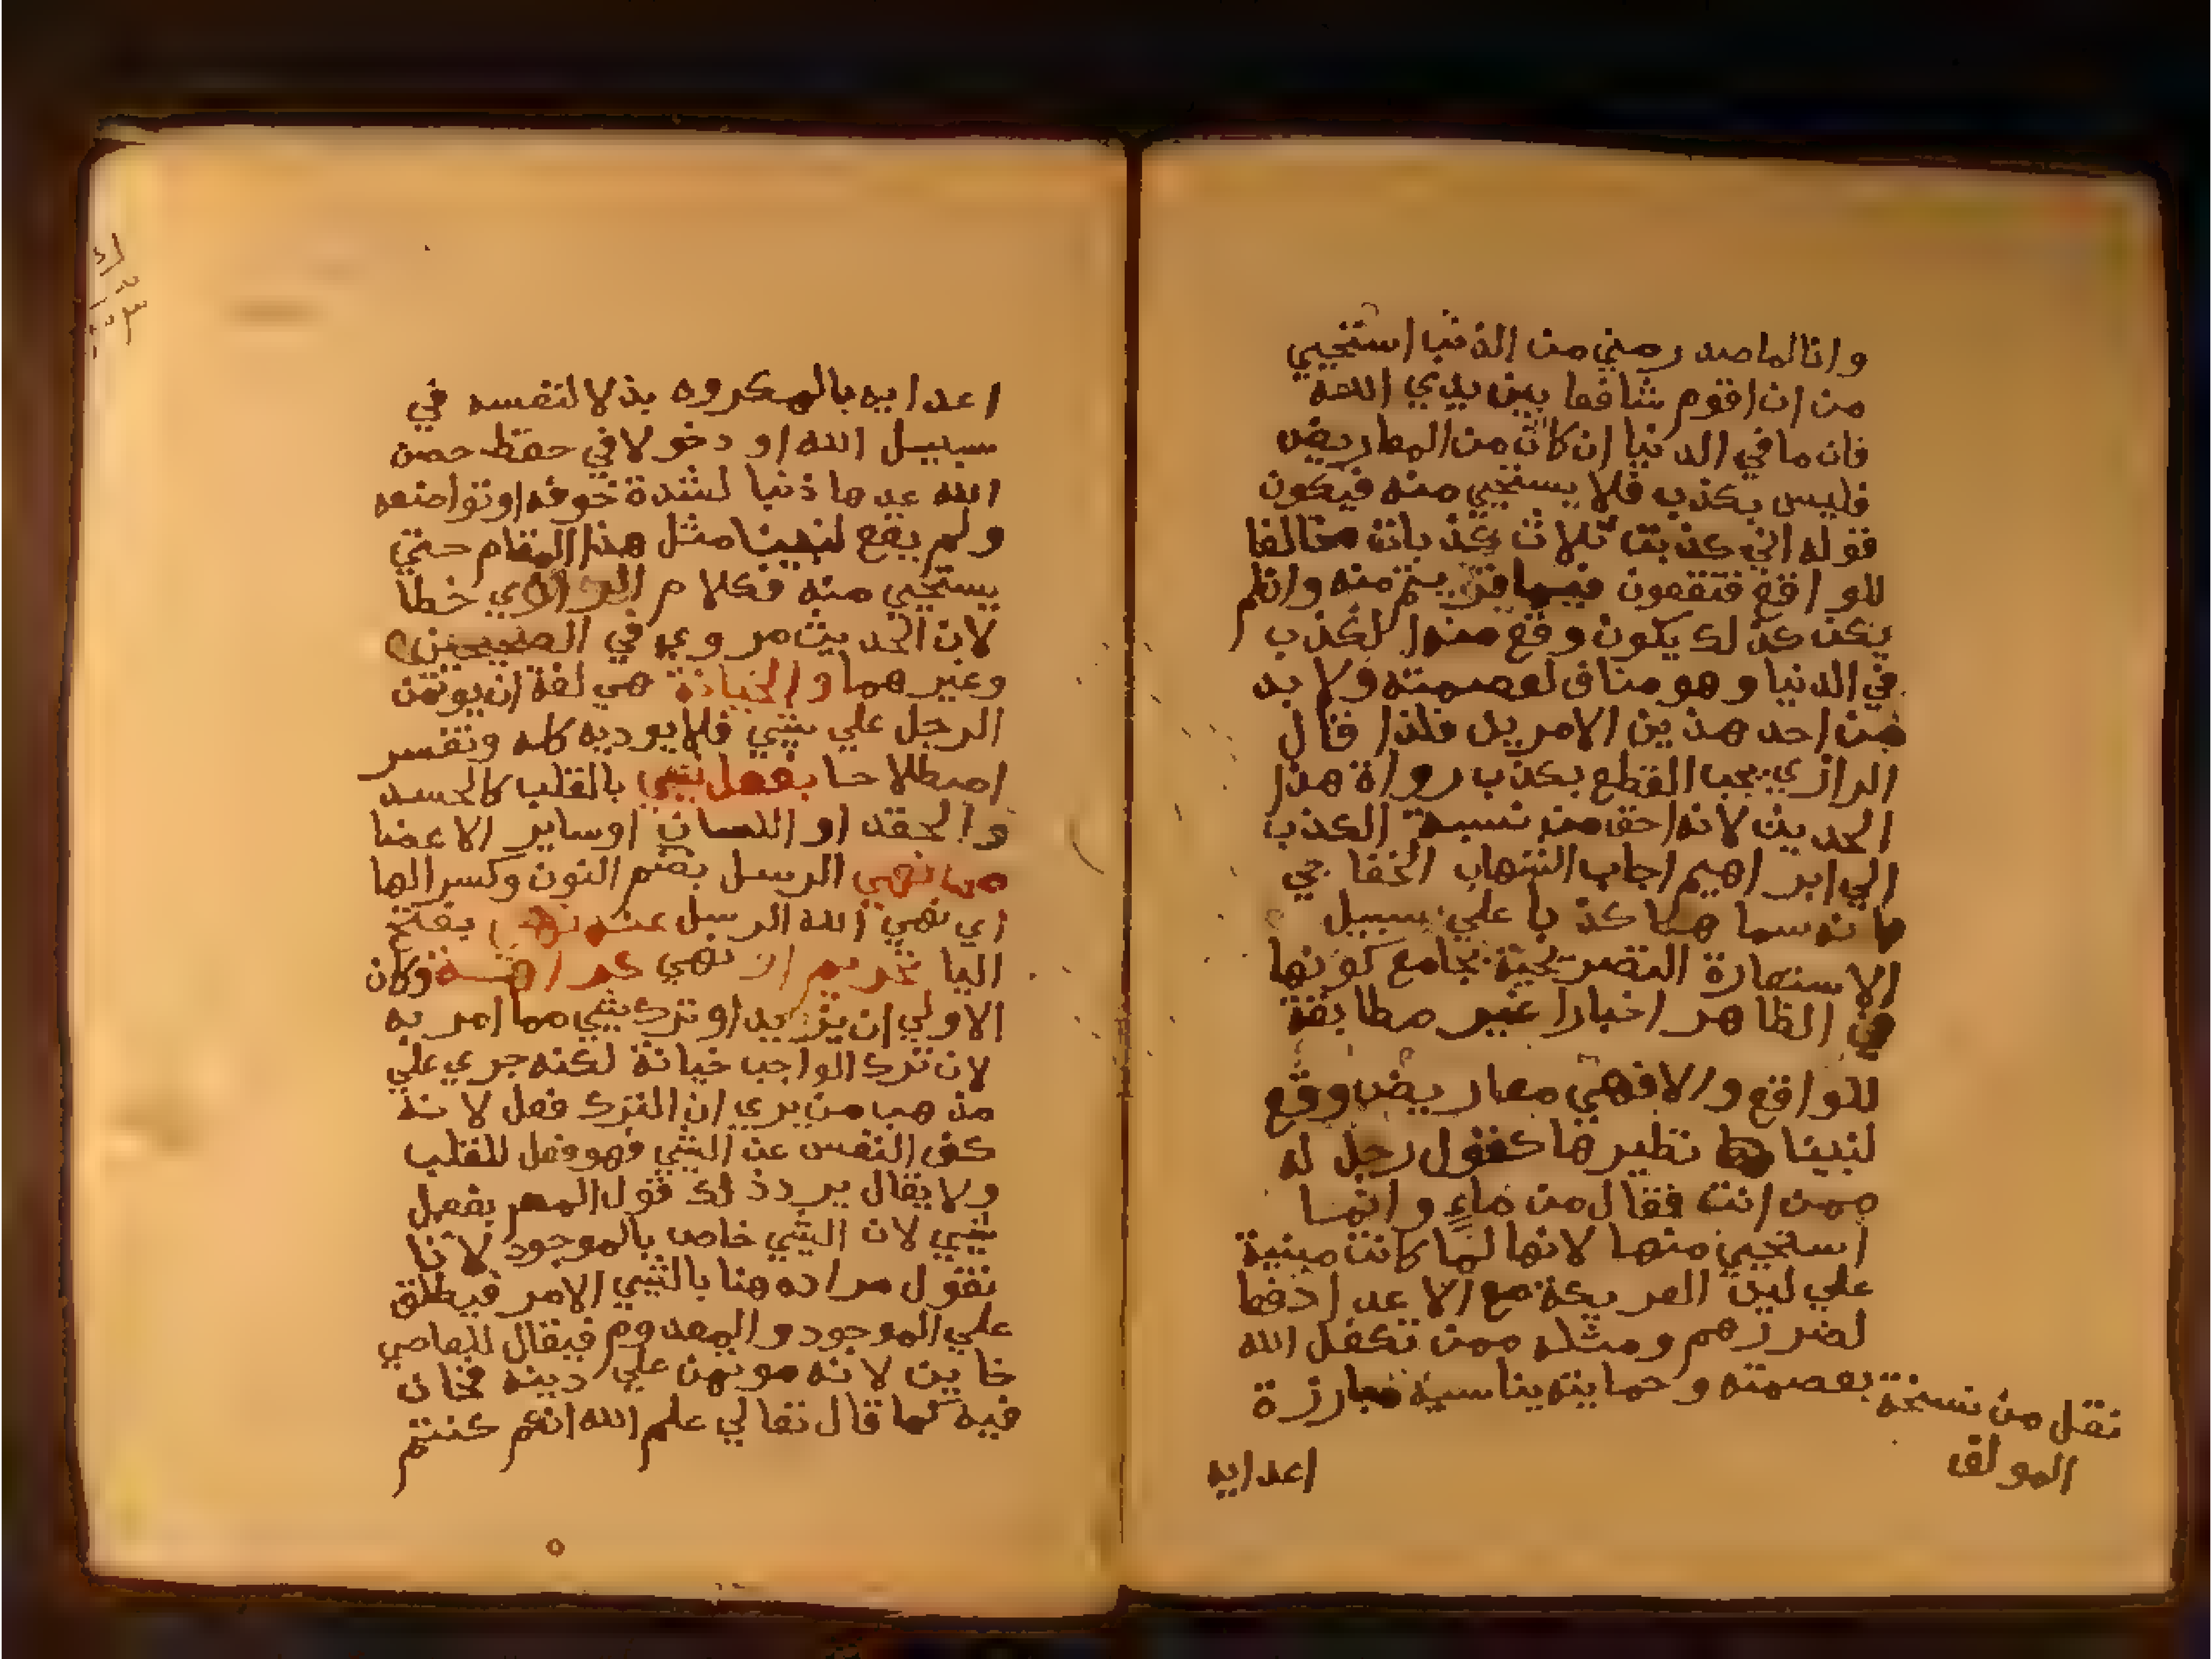 وانا لما صدر مني من الذنب استحيي
من ان اقوم شافعا بين يدي الله
فان ما في الدنيا ان كان من المعاريض
فليس بكذب فلا يستحيي منه فيكون
قوله اني كذبت ثلاث كذبات مخالفا
للواقع فتقعون فيما فر يتم منه وان لم
يكن كذلك يكون وقع منه الكذب
في الدنيا وهو مناف لعصمته ولا بد
من احد هذين الامرين فلذا قال
الرازي يجب القطع بكذب رواة هذا
الحديث لانه احق من نسبة الكذب
الي ابراهيم اجاب الشهاب الخفاجي
بانه سماها كذبا علي سبيل
الاستعارة التصريحية بجامع كونها
في الظاهر اخبارا غير مطابقة
للواقع والا فهي معاريض وقع
لنبينا نظيرها كقول رجل له
ممن انت فقال من ماءٍ وانما
استحيي منها لانها لما كانت مبنية
علي لين العريكة مع الاعدا دفعا
لضررهم ومثله ممن تكفل الله
بعصمته وحمايته يناسبه مبارزة
نقل من نسخة
المولف
اعدايه
اعدايه بالمكروه بذلا لنفسه في
سبيل الله او دخولا في حفظ حصن
الله عدها ذنبا لشدة خوفه او تواضعه
ولم يقع لنبينا مثل هذا المقام حتي
يستحيي منه فكلام الرازي خطا
لان الحديث مروي في الصحيحين
وغيرهما والخيانة هي لغة ان يوتمن
الرجل علي شيي فلا يوديه كله وتفسر
اصطلاحا بفعل شيي بالقلب كالحسد
والحقد او اللسان او ساير الاعضا
مما نهي الرسل بضم النون وكسر الها
اي نهي الله الرسل عنه نهي بفتح
اليا تحريم او نهي كراهة وكان
الاولي ان يزيد او ترك شيي مما امر به
لان ترك الواجب خيانة لكنه جري علي
مذهب من يري ان الترك فعل لانه
كف النفس عن الشيي فهو فعل للقلب
ولا يقال يرد ذلك قول المص بفعل
شيي لان الشيي خاص بالموجود لانا
نقول مراده هنا بالشيي الامر فيطلق
علي الموجود والمعدوم فيقال للعاصي
خاين لانه موتمن علي دينه فخان
فيه كما قال تعالي علم الله انكم كنتم